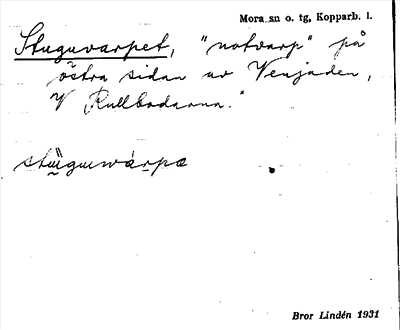 Mora sn o. tg, Kopparb. l.
Stuguvarpet, "notvarp" på
östra sidan av Venjaden,
V Rullbodarna."
Bror Lindén 1931